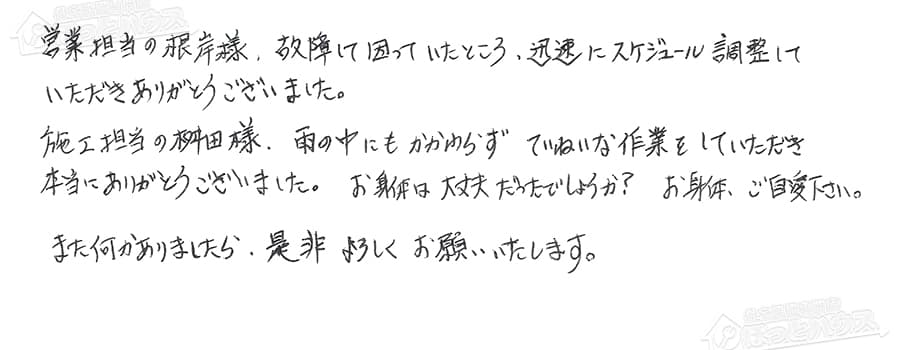 営業担当の根岸様、故障して困っていたところ、迅速にスケジュール調整して
いただきありがとうございました。
施工担当の桝田様、雨の中にもかかわらず ていねいな作業をしていただき
本当にありがとうございました。 お身体は大丈夫だったでしょうか? お身体、ご自愛下さい。
また何かありましたら、是非 よろしく お願いいたします。
ほっとハウス